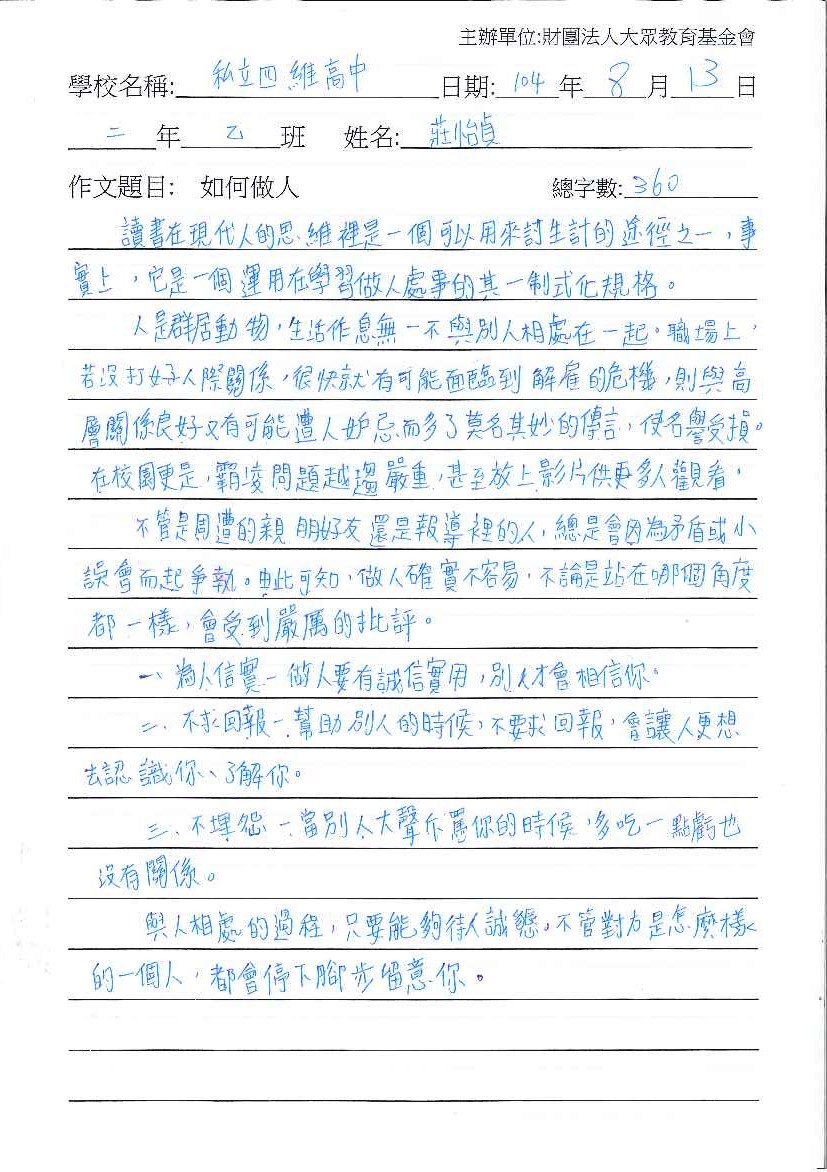 主辦單位:財團法人大眾教育基金會
學校名稱: 私立四維高中 日期: 104 年 8 月 13 日
二 年 乙 班 姓名: 莊怡貞
作文題目: 如何做人 總字數: 360
讀書在現代人的思維裡是一個可以用來討生計的途徑之一，事
實上，它是一個運用在學習做人處事的其一制式化規格。
人是群居動物，生活作息無一不與別人相處在一起。職場上，
若沒打好人際關係，很快就有可能面臨到解雇的危機，則與高
層關係良好又有可能遭人妒忌而多了莫名其妙的傳言，使名譽受損。
在校園更是，霸凌問題越趨嚴重，甚至放上影片供更多人觀看，
不管是周遭的親朋好友還是報導裡的人，總是會因為矛盾或小
誤會而起爭執。由此可知，做人確實不容易，不論是站在哪個角度
都一樣，會受到嚴厲的批評。
一、為人信實－做人要有誠信實用，別人才會相信你。
二、不求回報－幫助別人的時候，不要求回報，會讓人更想
去認識你、了解你。
三、不埋怨－當別人大聲斥罵你的時候，多吃一點虧也
沒有關係。
與人相處的過程，只要能夠待人誠懇，不管對方是怎麼樣
的一個人，都會停下腳步留意你。